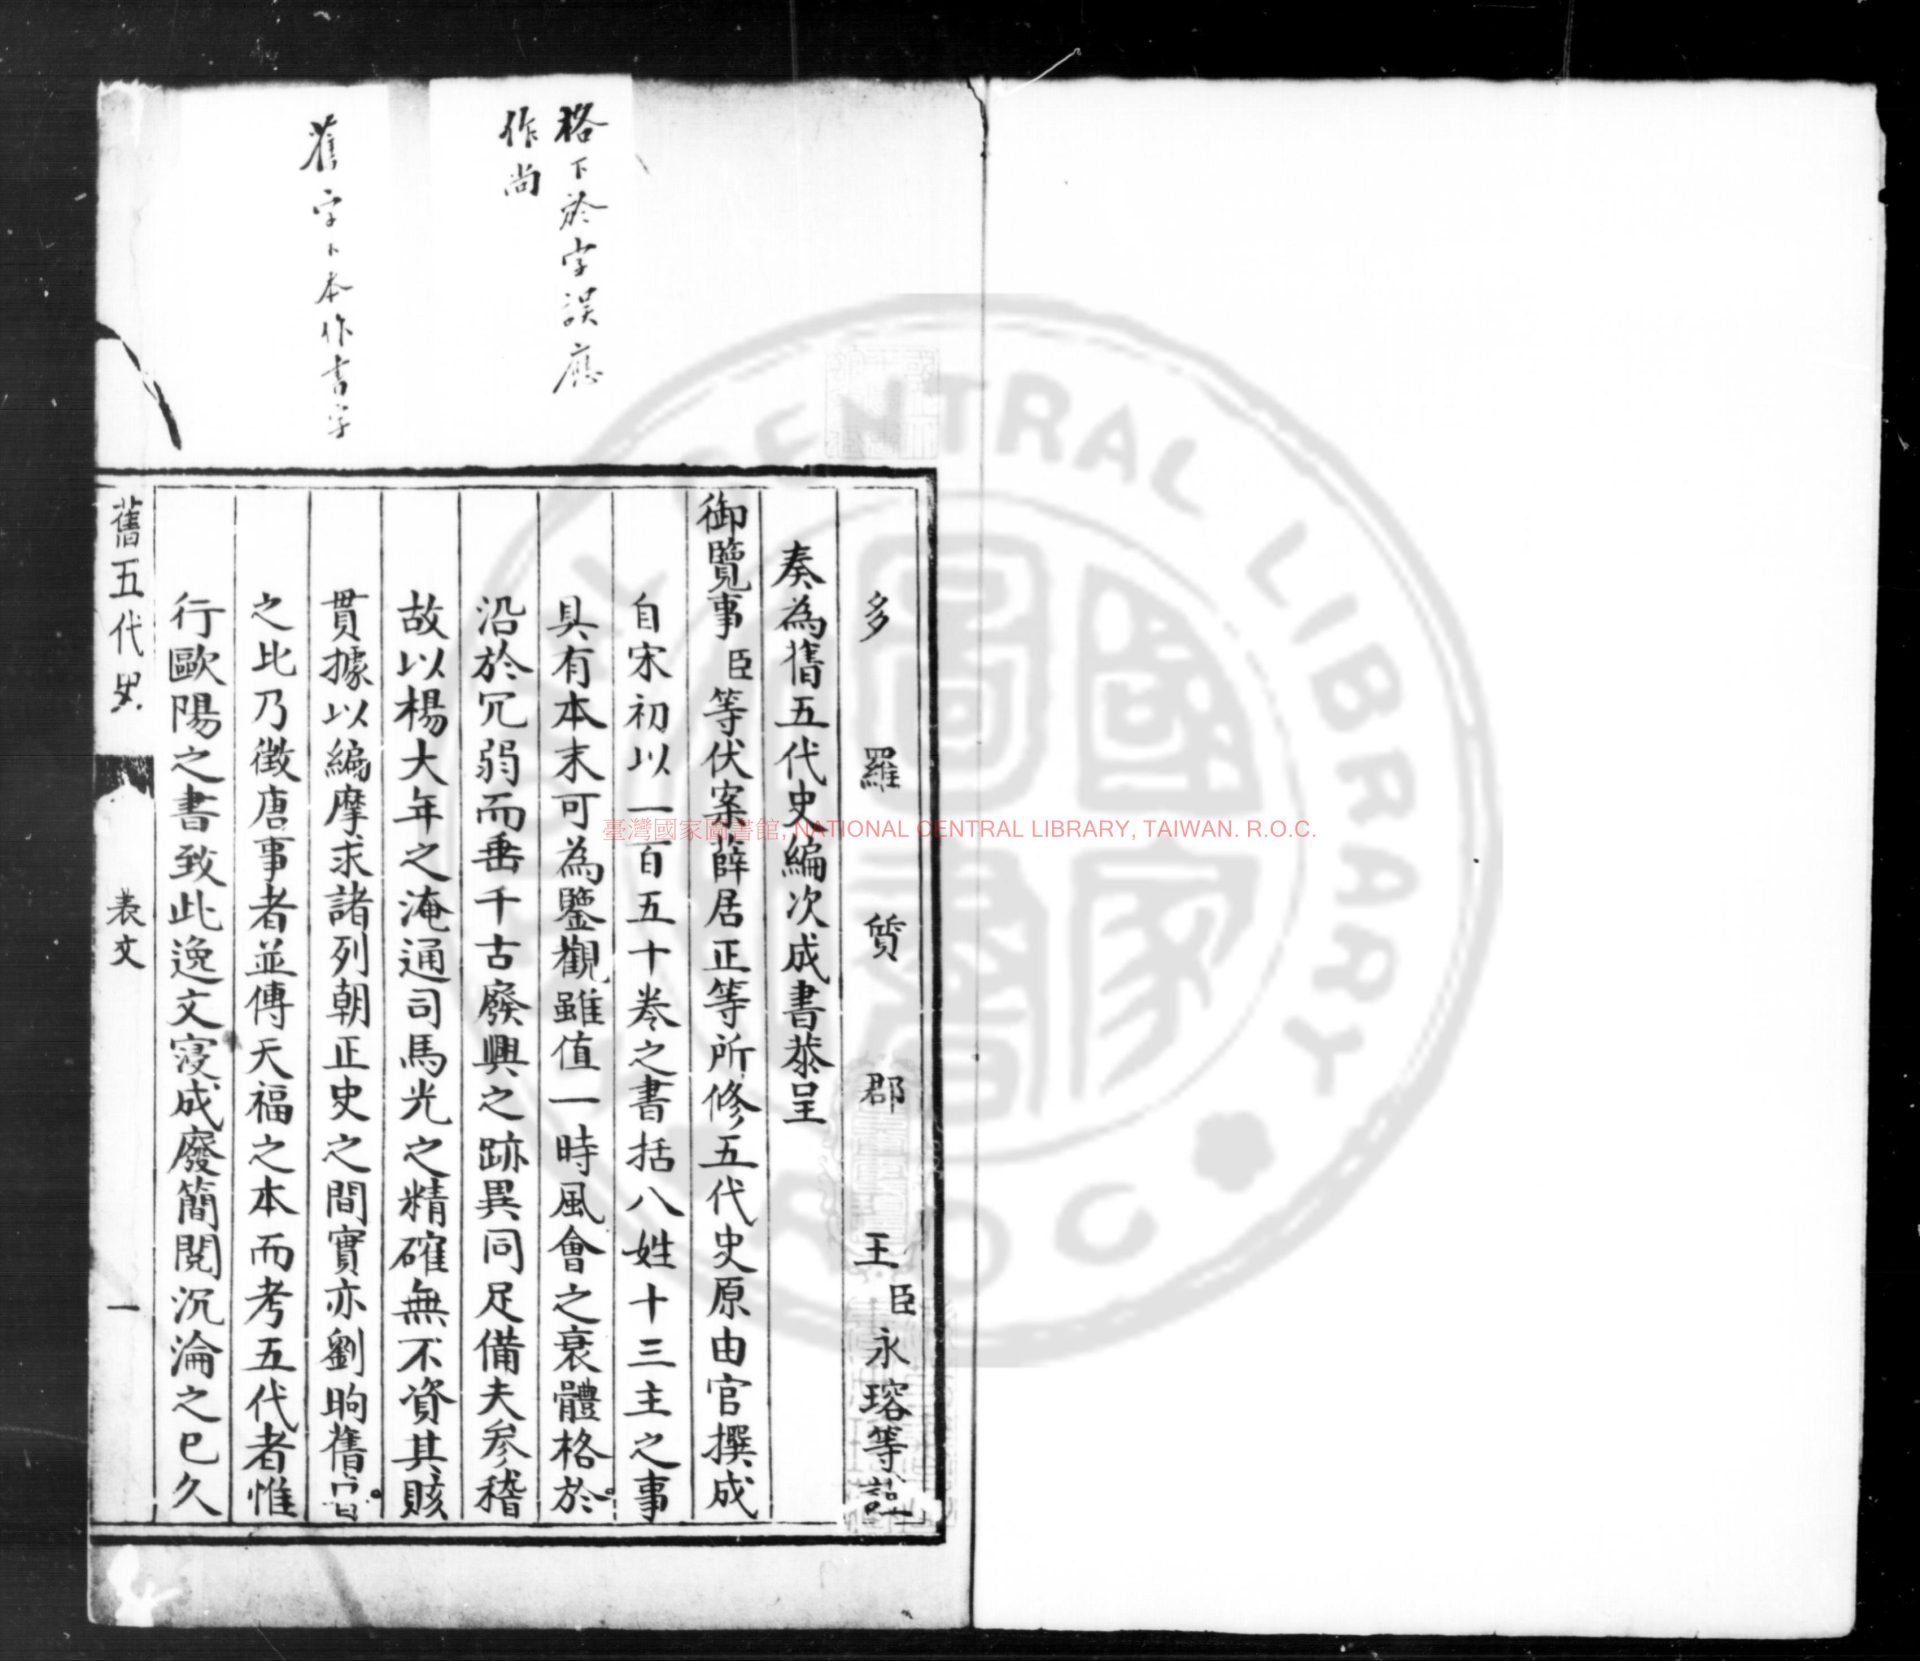 格下於字誤應
作尚
舊字卜本作書字
多羅質郡王臣永瑢等謹
奏為舊五代史編次成書恭呈
御覽事臣等伏案薛居正等所修五代史原由官撰成
自宋初以一百五十卷之書括八姓十三主之事
具有本末可為鑒觀雖值一時風會之衰體格於
沿於冗弱而垂千古廢興之跡異同足備夫參稽
故以楊大年之淹通司馬光之精確無不資其賅
貫據以編摩求諸列朝正史之間實亦劉昫舊書
之比乃徵唐事者並傳天福之本而考五代者惟
行歐陽之書致此逸文寖成廢簡閱沉淪之已久
舊五代史 表文 一
臺灣國家圖書館, NATIONAL CENTRAL LIBRARY, TAIWAN. R.O.C.
NATIONAL CENTRAL LIBRARY R.O.C.
國家圖書